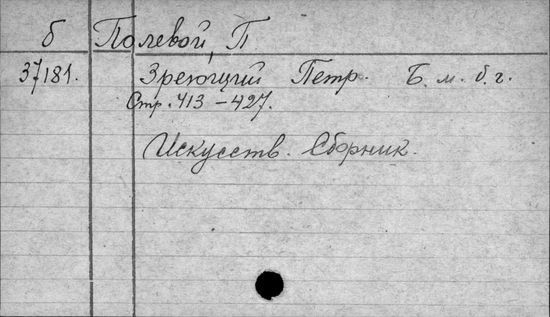 б Полевой, П
37181. Зреющий Петр. Б. м. б. г.
Стр. 413-427.
Искусств. Сборник.